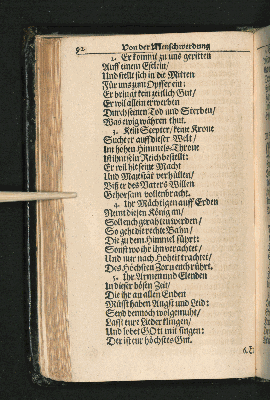 92 Von der Menschwerdung
2. Er kommt zu uns geritten
Auff einem Eselein/
Und stellt sich in die Mitten
Für uns zum Opffer ein:
Er bringt kein zeitlich Gut/
Er wil allein erwerben
Durch seinen Tod und Sterben/
Was ewig währen thut.
3. Kein Scepter/ keine Krone
Sucht er auff dieser Welt/
Im hohen Himmels-Throne
Ist ihm sein Reich bestellt:
Er wil hie seine Macht
Und Majestät verhüllen/
Biß er des Vaters Willen
Gehorsam vollenbracht.
4. Ihr Mächtigen auff Erden
Nemt diesen König an/
Wollt ihr gerahten werden/
So geht die rechte Bahn/
Die zu dem Himmel führt:
Sonst wo ihr ihn verachtet/
Und nur nach Hoheit trachtet/
Des Höchsten Zorn euch rührt.
5. Ihr Armen und Elenden
In dieser bösen Zeit/
Die ihr an allen Enden
Müsst haben Angst und Leid:
Seyd dennoch wolgemuht/
Lasst eure Lieder klingen/
Und lobet GOtt mit singen:
Der ist eur höchstes Gut.